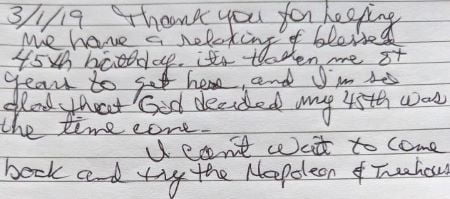 3/1/19 Thank you for helping
me have a relaxing & blessed
45th birthday. its taken me 8+
years to get here, and I'm so
glad that God decided my 45th was
the time come.
I can't wait to come
back and try the Napoleon & Treehous